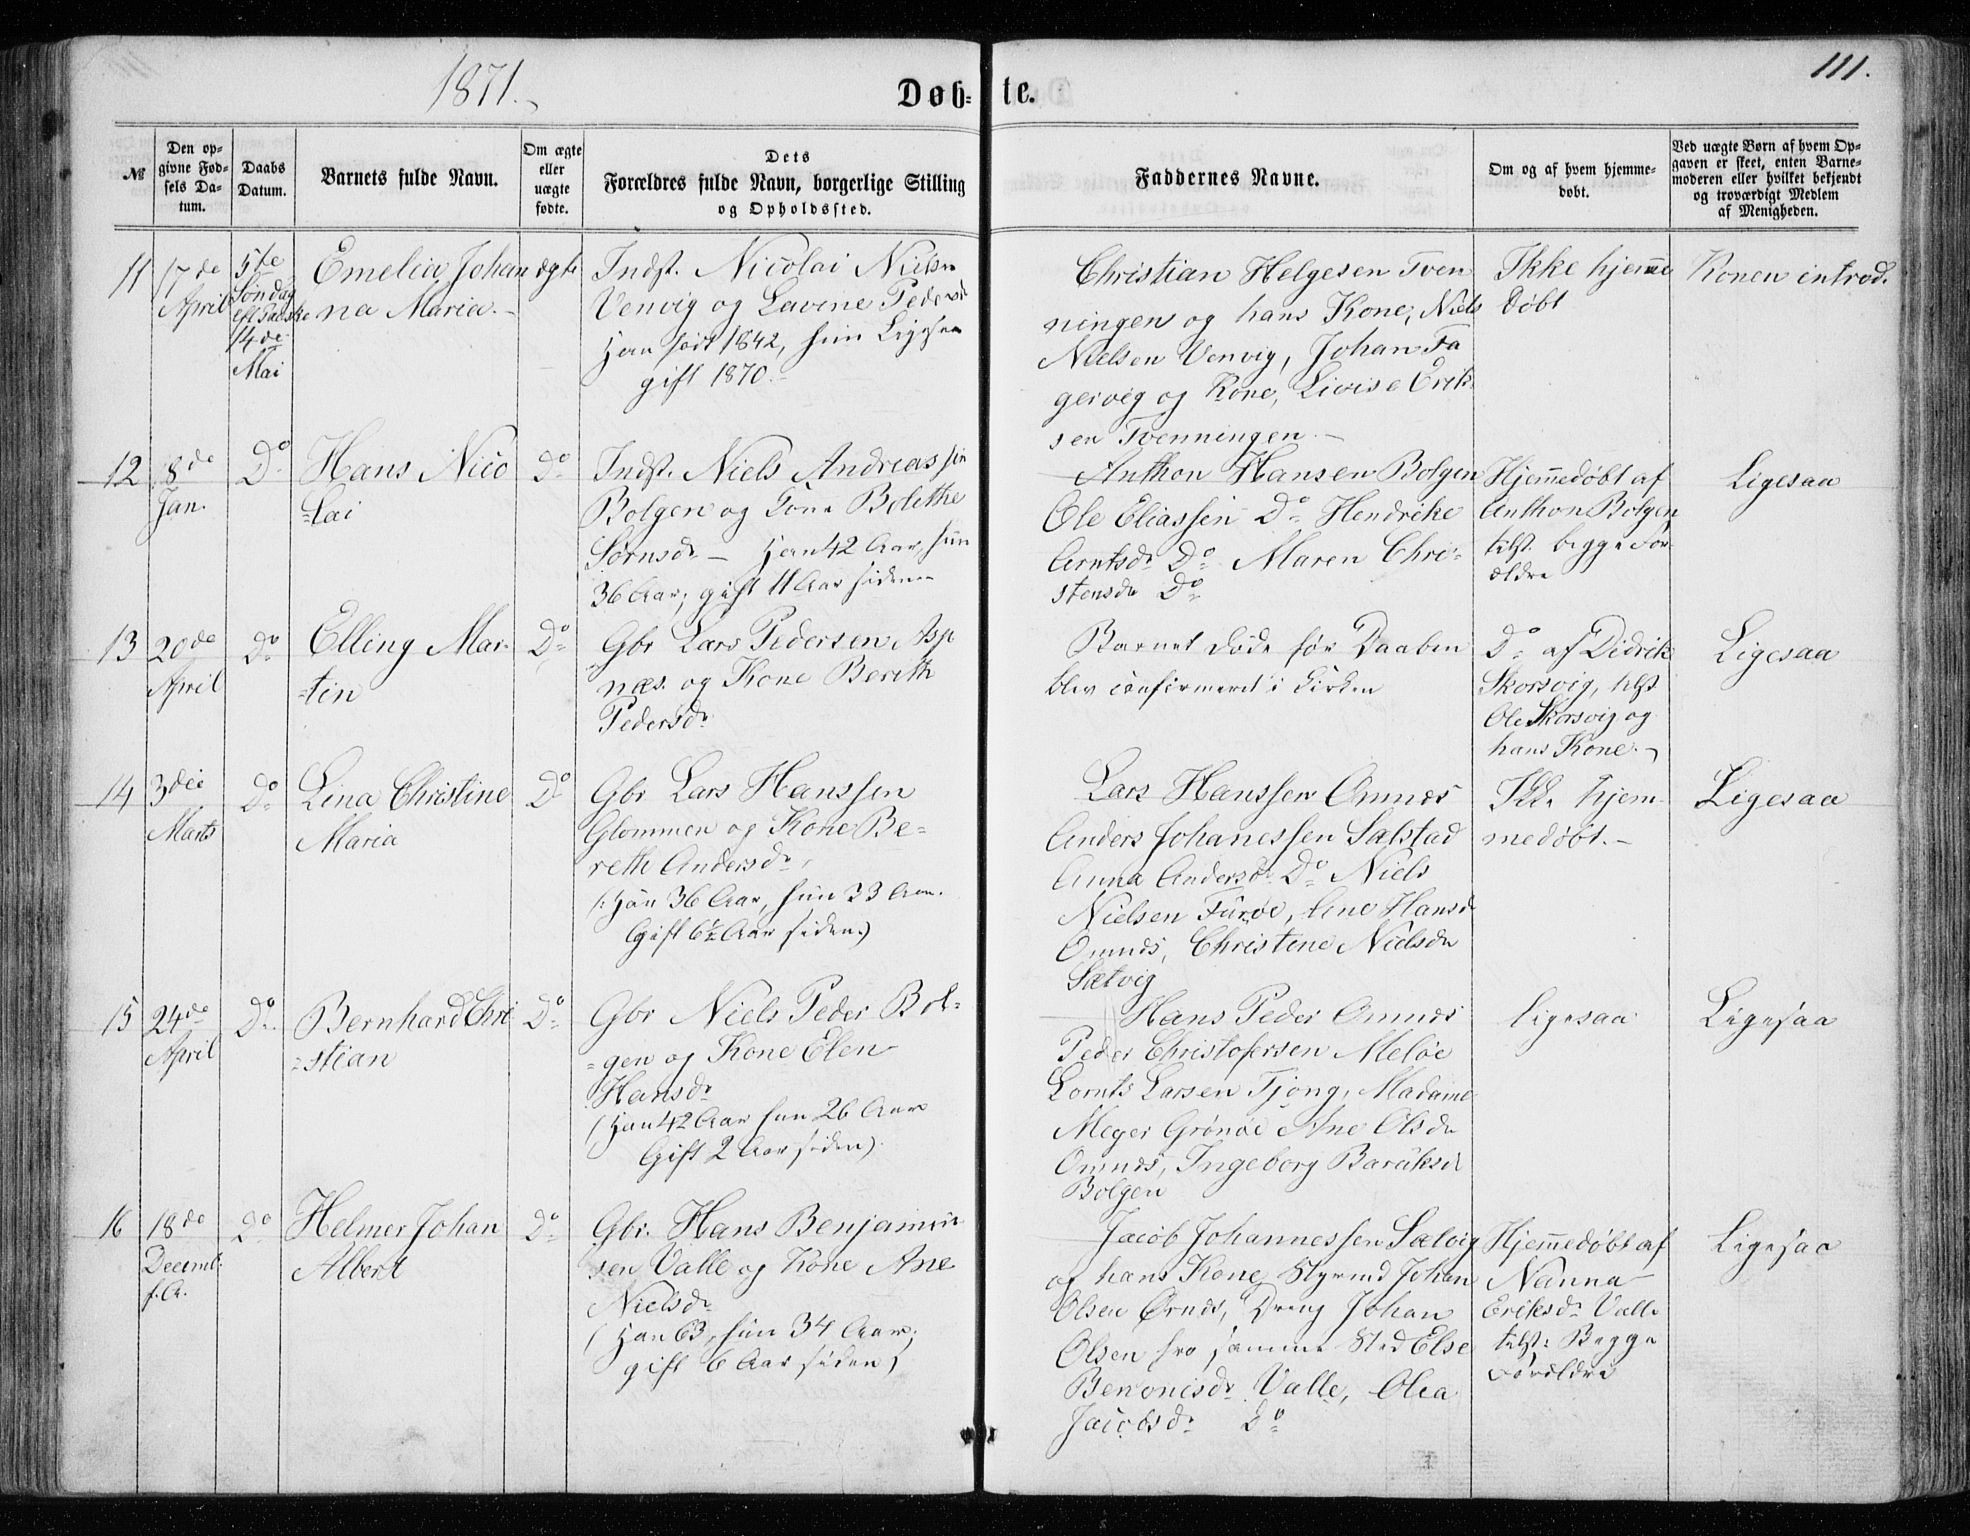 1871.
Døb-te.
111.
№
Den opgivne Fødsels Datum.
Daabs Datum.
Barnets fulde Navn.
Om ægte eller uægte fødte.
Dets
Forældres fulde Navn, borgerlige Stilling
og Opholdssted.
Faddernes Navne.
Om og af hvem hjemmedøbt.
Ved uægte Børn af hvem Opgaven er skeet, enten Barnemoderen eller hvilket bekjendt og troværdigt Medlem af Menigheden.
11
17de
April
5te
Søndag
eft Paaske
14de
Mai
Emelia Johan
na Maria.
ægte
Indst. Nicolai Nielsen
Venvig og Lavine Pedersd
Han født 1842, hun Ligesaa
gift 1870.
Christian Helgesen Tven
ningen og hans Kone, Niels
Nielsen Venvig, Johan Fa
gervig og Kone, Livise Erik
sen Tvenningen.
Ikke hjemme
døbt
Konen introd.
12
8de
Jan.
Do
Hans Nico
=lai
Do
Indst. Niels Andreassen
Bolgen og Kone Bolethe
Sørnsdr — Han 42 Aar, hun
36 Aar, gift 11 Aar siden
Anthon Hansen Bolgen
Ole Eliassen Do Hendrike
Arntsdr Do Maren Chri-
stensdr Do
Hjemmedøbt af
Anthon Bolgen
tilst. begge For-
ældre
Ligesaa
13
20de
April
Do
Elling Mar-
=tin
Do
Gbr Lars Pedersen Asp
næs. og Kone Bereth
Pedersdr
Barnet døde før Daaben
blev confirmeret i Kirken
Do af Didrik
Skorsvig, tilst
Ole Skorsvig og
hans Kone.
Ligesaa
14
3die
Marts
Do
Lina Christine
Maria
Do
Gbr Lars Hanssen
Glommen og Kone Be-
reth Andersdr,
(: Han 36 Aar, hun 33 Aar.
Gift 6½ Aar siden.)
Lars Hanssen Ommes
Anders Johanessen Sælstad
Anna Andersdr. Do Niels
Nielsen Furøe, Ane Hansd
Ommes, Christine Nielsdr
Sætvig
Ikke hjem
medøbt.
Ligesaa
15
24de
April
Do
Bernhard Chri
=stian
Do
Gbr Niels Peder Bol-
=gen og Kone Elen
Hansdr
(Han 42 Aar hun 26 Aar
Gift 2 Aar siden)
Hans Peder Ommes
Peder Christofersen Meløe
Lornts Larsen Tjong, Madame
Meyer Grønøe Ane Olsdr
Ommes, Ingeborg Baraksd
Bolgen
Ligesaa
Ligesaa
16
18de
Decemb.
f.A.
Do
Helmer Johan
Albert
Do
Gbr. Hans Benjamin
sen Valle og Kone Ane
Nielsdr
(Han 63, hun 34 Aar;
gift 6 Aar siden)
Jacob Johannessen Sætvig
og hans Kone, Styrmd Johan
Olsen Ørnes, Dreng Johan
Olsen fra samme Sted Else
Benonisdr Valle, Olea
Jacobsdr Do
Hjemmedøbt af
Nanna
Eriksdr Valle
tilst: Begge
Forældre
Ligesaa